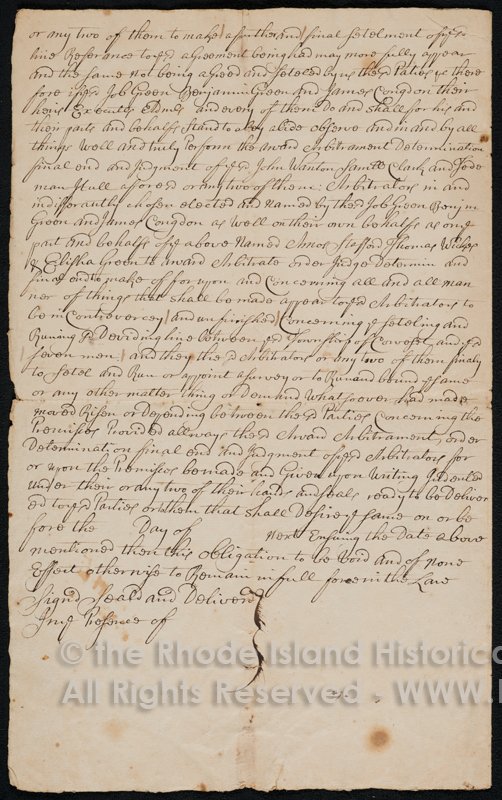 or any two of them to make a further and final Setelment of sd
line Referance to sd agreement being had may more fully appear
and the same not being agreed and Seteled by us the sd Parties yt there
fore if sd Job Green Benjamin Green and James Congdon their
heirs Executrs Admrs and every of them Do and shall for his and
their parts and behalfs Stand to obey abide observe and in and by all
things Well and truly Perform the award Arbitrament Determination
final end and Judgment of sd John Wanton Samll Clark and Jode
man Hull aforesd or any two of them: Arbitrators in and
indifferantly chosen elected and Named by the sd Job Green Benjm
Green and James Congdon as well on their own behalfs as one
part and behalfs of ye above Named Amos Stafford Thomas Wickes
& Elisha Green to award Arbitrate order Judge Determin and
final end to make of for upon and Concerning all and all man
ner of things that shall be made appear to sd Arbitrators to
be in Controvercey and unfinished Concerning ye Seteling and
Runing ye Deviding line between sd Township of Coweset and sd
Seven men and they the sd Arbitrators or any two of them finaly
to Setel and Run or appoint a Survey or to Run and bound ye Same
or any other matter thing or Demand Whatsoever had made
moved Risen or Depending between the sd Parties Concerning the
Premises Provided allways the sd Award Arbitrament order
Determination final end And Judgment of sd Arbitrators for
or upon the Premises be made and Given upon Writing Indented
under their or any two of their hands and seals ready to be Deliver
ed to sd Parties or them that shall Desire ye Same on or be
fore the Day of Next Ensuing the Date above
mentioned then this obligation to be Void and of None
Effect otherwise to Remain in full force in the Law
Signd Seald and Deliverd
In ye Presence of
© the Rhode Island Historica
All Rights Reserved - WWW.